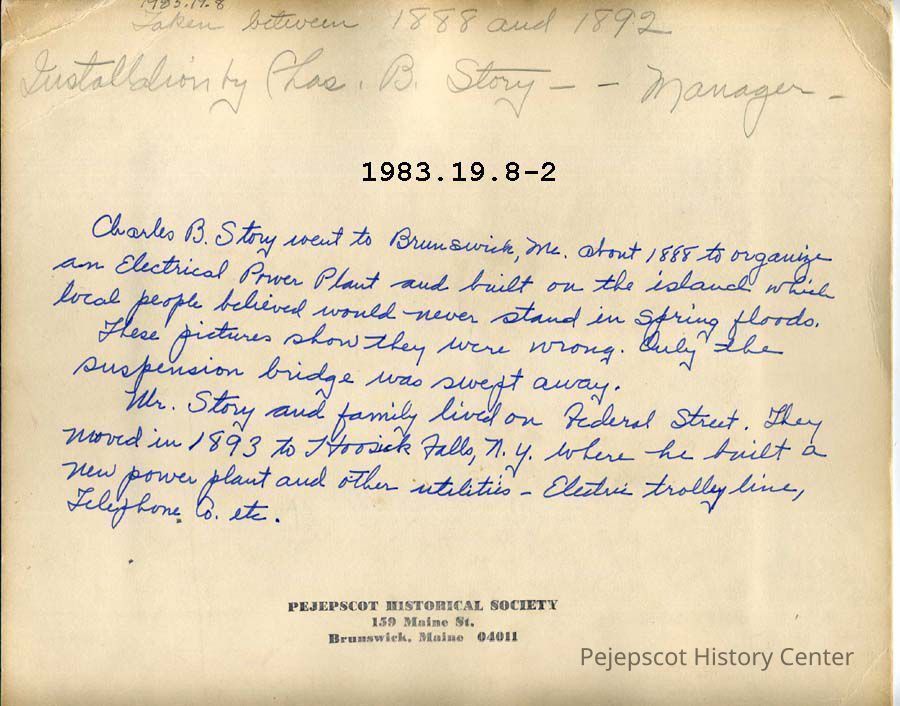 1983.19.8
Taken between 1888 and 1892
Installation by Chas. B. Story - - Manager -
1983.19.8-2
Charles B. Story went to Brunswick, Me. about 1888 to organize
an Electrical Power Plant and built on the island which
local people believed would never stand in Spring floods.
These pictures show they were wrong. Only the
suspension bridge was swept away.
Mr. Story and family lived on Federal Street. They
moved in 1893 to Hoosick Falls, N.Y. where he built a
new power plant and other utilities - Electric trolley line,
Telephone Co. etc.
PEJEPSCOT HISTORICAL SOCIETY
159 Maine St.
Brunswick, Maine 04011
Pejepscot History Center